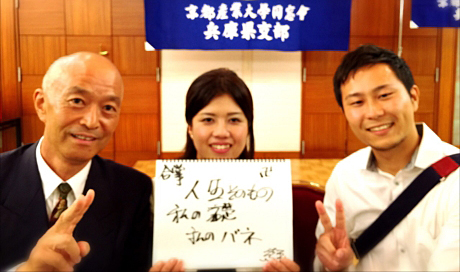 京都産業大学同窓会
兵庫県支部
人生そのもの
私の
私のバネ